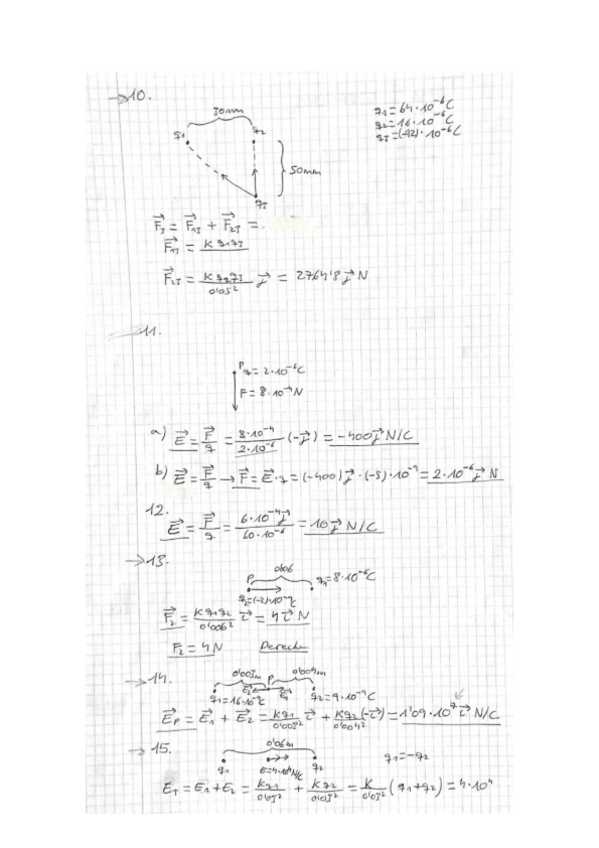 10.
30mm
q1 q2
50mm
q3
q1=64·10⁻⁶C
q2=16·10⁻⁶C
q3=(-12)·10⁻⁶C
F⃗3 = F⃗13 + F⃗23 =
F⃗13 = K q1q3
F⃗23 = K q2q3 / 0'05² j⃗ = 2764'8 j⃗ N
11.
P q= 2·10⁻⁶C
F= 8·10⁻⁴N
a) E⃗ = F⃗/q = 8·10⁻⁴ / 2·10⁻⁶ (-j⃗) = -400j⃗ N/C
b) E⃗ = F⃗/q → F⃗ = E⃗·q = (-400)j⃗ · (-5)·10⁻⁹ = 2·10⁻⁶ j⃗ N
12.
E⃗ = F⃗/q = 6·10⁻⁴j⃗ / 60·10⁻⁶ = 10j⃗ N/C
13.
P q1=8·10⁻⁶C
F⃗2 = K q1q2 / 0'006² i⃗ = 4 i⃗ N
F2 = 4N Derecha
14.
0'003m P 0'004m
E⃗2 E⃗1
q2=9·10⁻⁹C
E⃗P = E⃗1 + E⃗2 = Kq1 / 0'003² i⃗ + Kq2 / 0'004² (-i⃗) = 1'09·10⁷ i⃗ N/C
15.
0'06m
q1 E=4·10⁴N/C q2
q1=-q2
ET = E1+E2 = Kq1 / 0'03² + Kq2 / 0'03² = K / 0'03² (q1+q2) = 4·10⁴